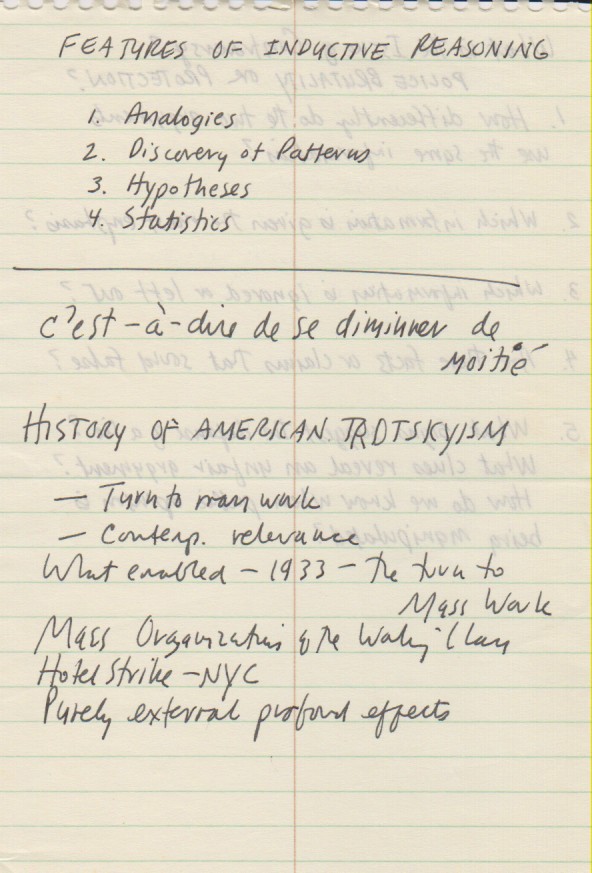 FEATURES OF INDUCTIVE REASONING
1. Analogies
2. Discovery of Patterns
3. Hypotheses
4. Statistics
c'est-à-dire de se diminuer de
moitié
HISTORY OF AMERICAN TROTSKYISM
— Turn to mass work
— Contemp. relevance
What enabled - 1933 - the turn to
Mass Work
Mass Organization of the Working Class
Hotel Strike - NYC
Purely external profound effects